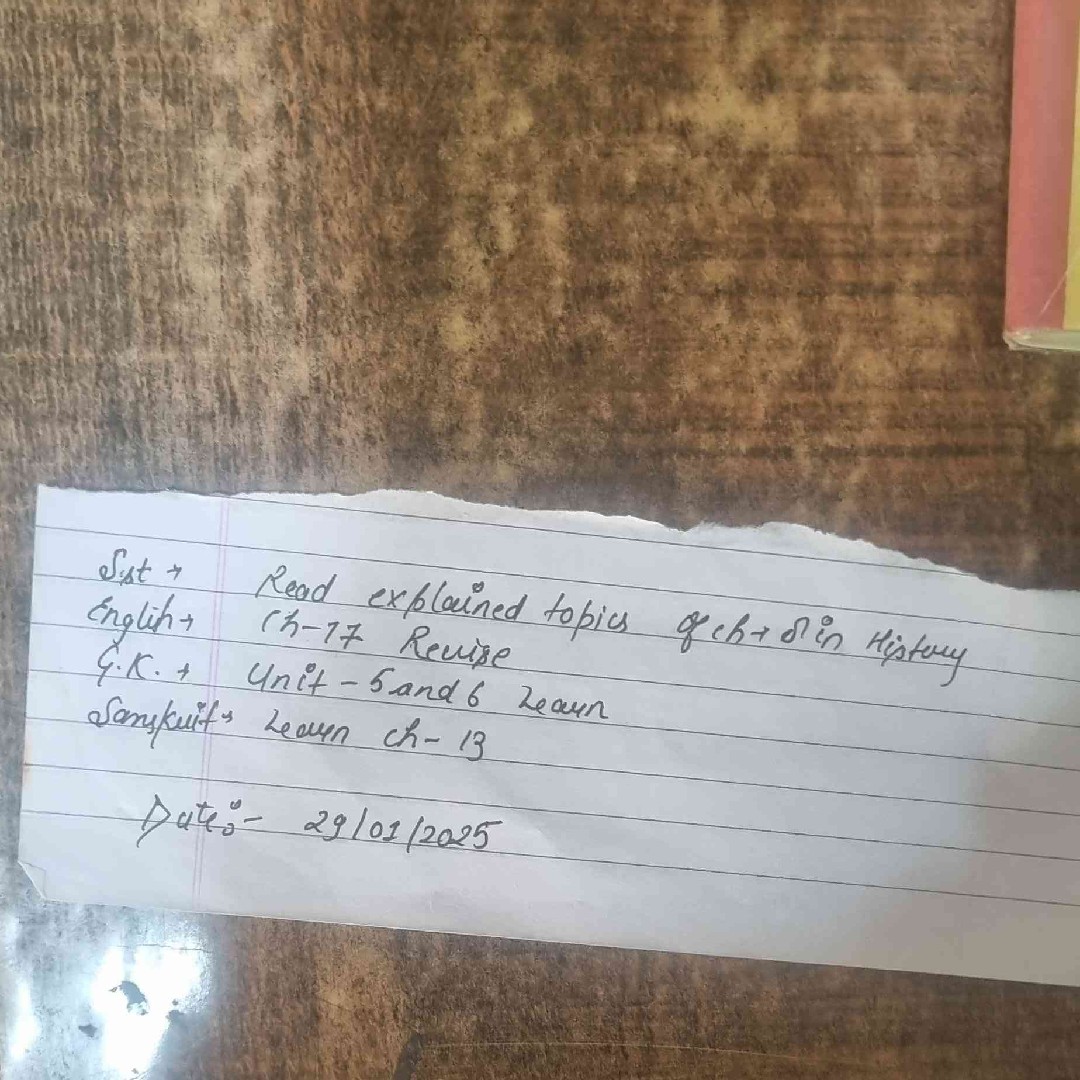 S.st → Read explained topics of ch → 8 in History
English → Ch-17 Revise
G.K. → Unit - 5 and 6 Learn
Sanskrit → Learn ch- 13
Date:- 29/01/2025